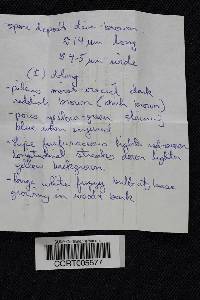 spore deposit olive-brown
≤ 14 µm long
≤ 4-5 µm wide
(I)
- pileus moist-viscid dark
reddish brown (dark brown)
- pores yellow-green staining
blue when injured
- stipe furfuraceous lighter red-brown
longitudinal streaks down lighter
yellow background.
- large white fuzzy bulbous base
growing in woods bark
CORT005577